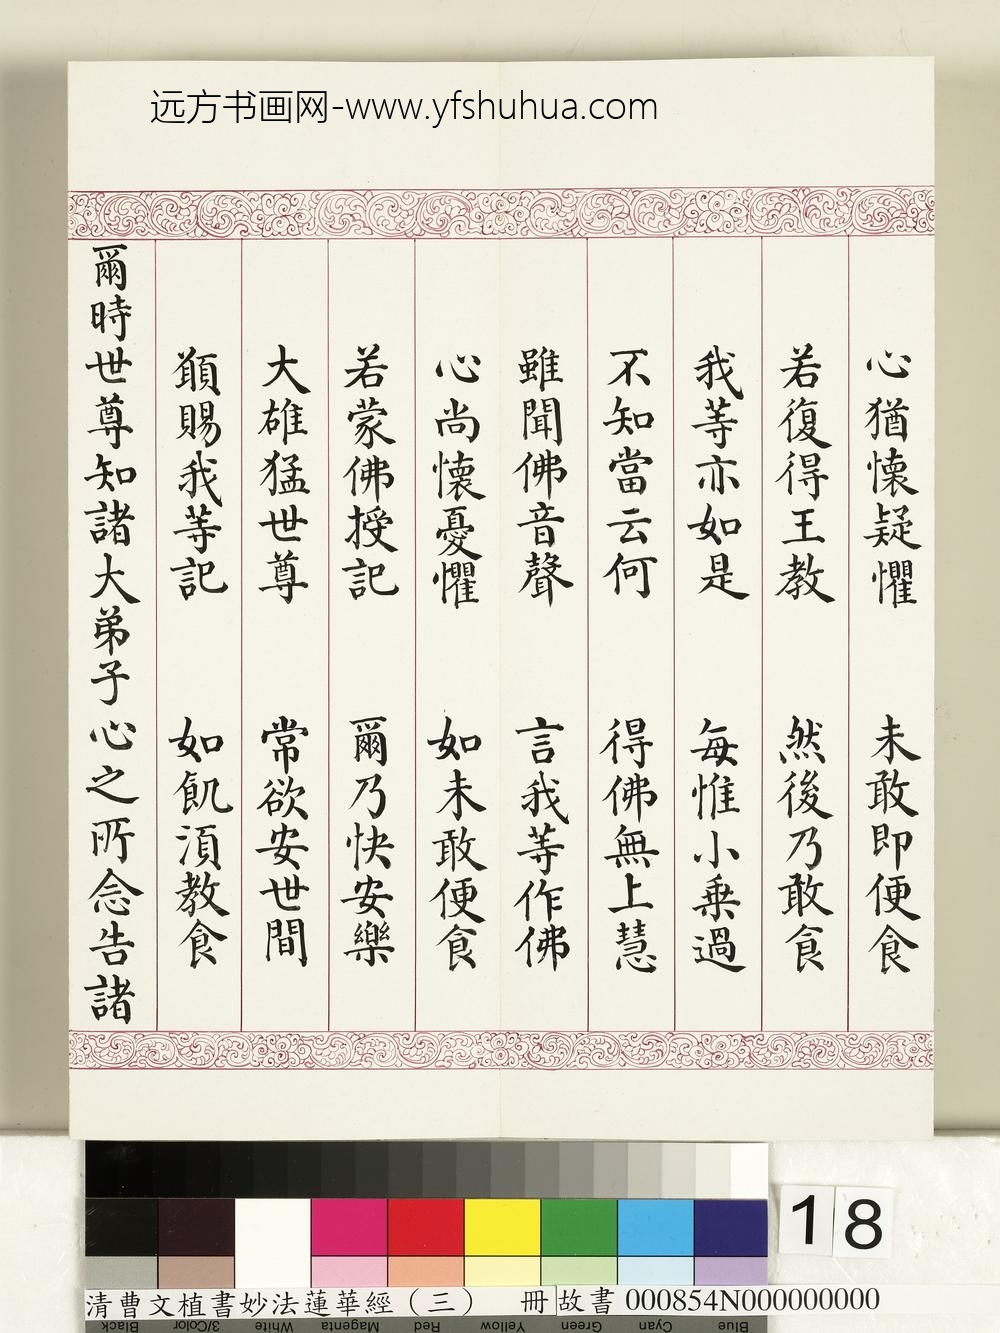 远方书画网-www.yfshuhua.com
心猶懷疑懼 未敢即便食
若復得王教 然後乃敢食
我等亦如是 每惟小乗過
不知當云何 得佛無上慧
雖聞佛音聲 言我等作佛
心尚懷憂懼 如未敢便食
若蒙佛授記 爾乃快安樂
大雄猛世尊 常欲安世間
願賜我等記 如飢湏教食
爾時世尊知諸大弟子心之所念告諸
18
清曹文植書妙法蓮華經（三） 冊 故書 000854N000000000
Black 3/Color White Magenta Red Yellow Green Cyan Blue